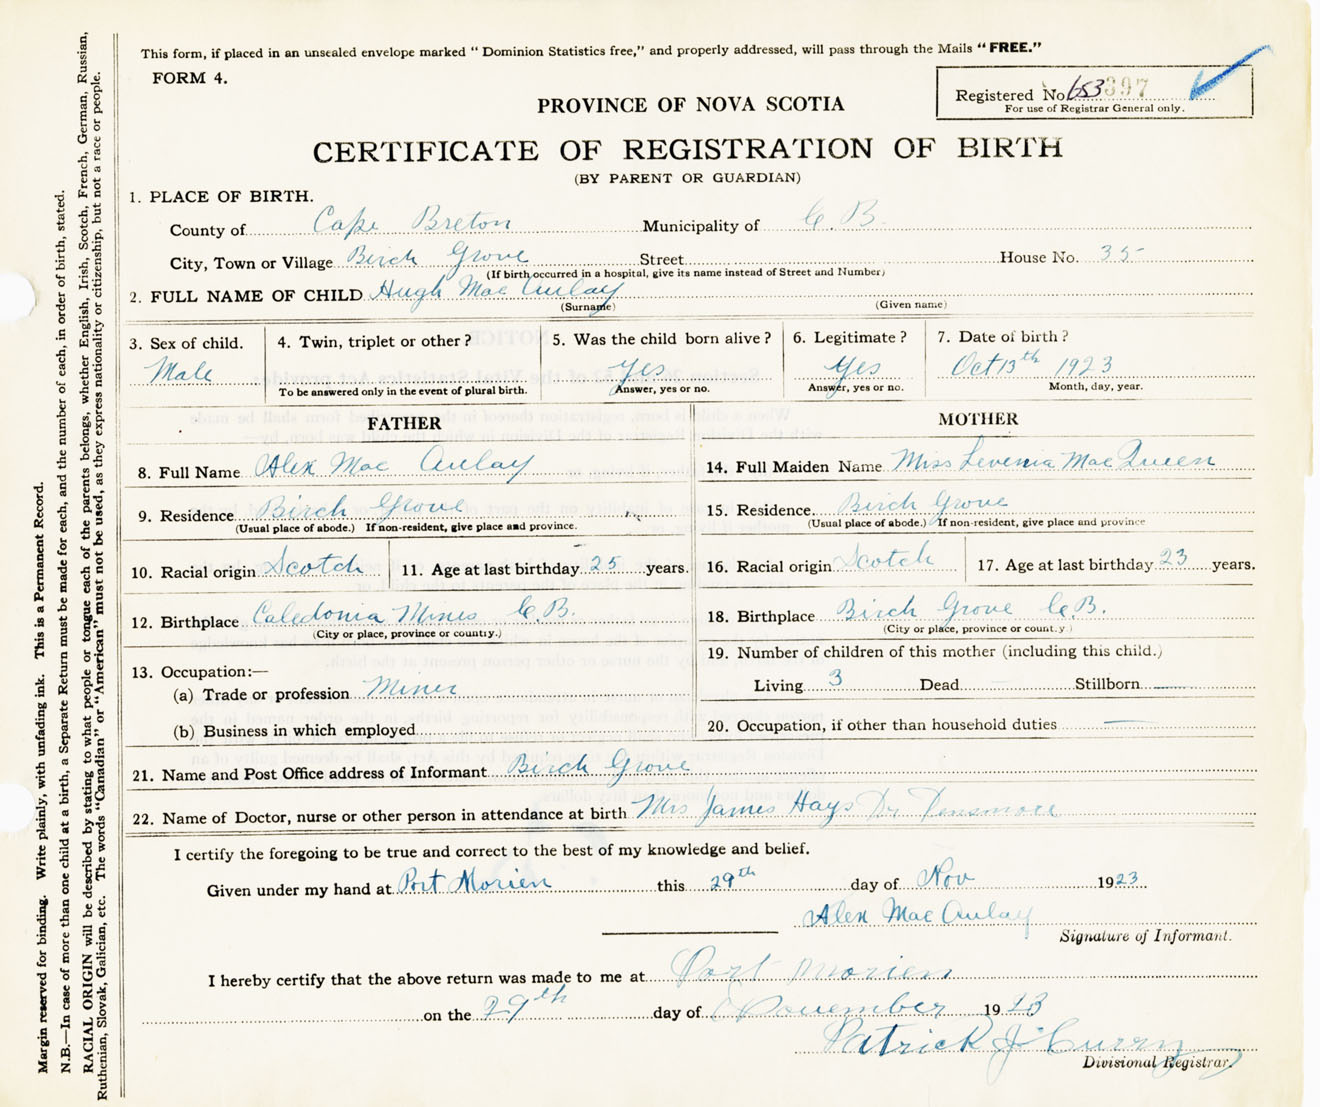 This form, if placed in an unsealed envelope marked " Dominion Statistics free," and properly addressed, will pass through the Mails "FREE."
FORM 4.
Registered No. 653 397
For use of Registrar General only.
PROVINCE OF NOVA SCOTIA
CERTIFICATE OF REGISTRATION OF BIRTH
(BY PARENT OR GUARDIAN)
1. PLACE OF BIRTH.
County of Cape Breton Municipality of C. B.
City, Town or Village Birch Grove Street House No. 35
(If birth occurred in a hospital, give its name instead of Street and Number)
2. FULL NAME OF CHILD Hugh Mac Aulay
(Surname) (Given name)
3. Sex of child. 4. Twin, triplet or other? 5. Was the child born alive? 6. Legitimate? 7. Date of birth?
Male Yes Yes Oct 13th 1923
To be answered only in the event of plural birth. Answer, yes or no. Answer, yes or no. Month, day, year.
FATHER MOTHER
8. Full Name Alex Mac Aulay 14. Full Maiden Name Miss Levenia Mac Queen
9. Residence Birch Grove 15. Residence Birch Grove
(Usual place of abode.) If non-resident, give place and province. (Usual place of abode.) If non-resident, give place and province
10. Racial origin Scotch 11. Age at last birthday 25 years. 16. Racial origin Scotch 17. Age at last birthday 23 years.
12. Birthplace Caledonia Mines C.B. 18. Birthplace Birch Grove C.B.
(City or place, province or county.) (City or place, province or county.)
13. Occupation:— 19. Number of children of this mother (including this child.)
(a) Trade or profession Miner Living 3 Dead — Stillborn —
(b) Business in which employed 20. Occupation, if other than household duties —
21. Name and Post Office address of Informant Birch Grove
22. Name of Doctor, nurse or other person in attendance at birth Mrs James Hays Dr Densmore
I certify the foregoing to be true and correct to the best of my knowledge and belief.
Given under my hand at Port Morien this 29th day of Nov 1923
Alex Mac Aulay
Signature of Informant.
I hereby certify that the above return was made to me at Port Morien
on the 29th day of November 1923
Patrick J. Curry
Divisional Registrar.
Margin reserved for binding. Write plainly, with unfading ink. This is a Permanent Record.
N.B.—In case of more than one child at a birth, a Separate Return must be made for each, and the number of each, in order of birth, stated.
RACIAL ORIGIN will be described by stating to what people or tongue each of the parents belongs, whether English, Irish, Scotch, French, German, Russian,
Ruthenian, Slovak, Galician, etc. The words "Canadian" or "American" must not be used, as they express nationality or citizenship, but not a race or people.